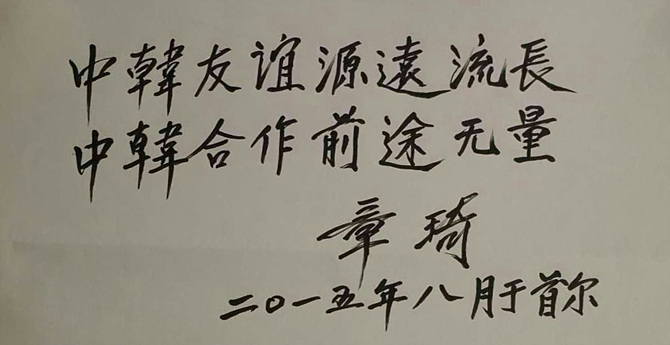 中韓友谊源遠流長
中韓合作前途无量
章琦
二〇一五年八月于首尔